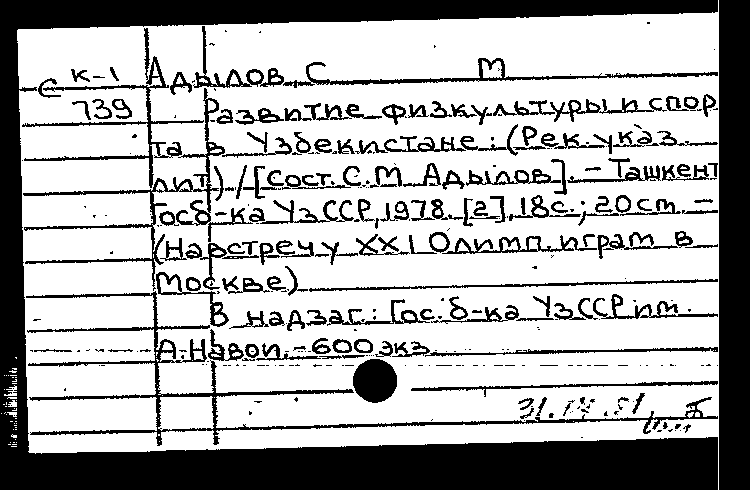 С К-1 Адылов, С М
739 Развитие физкультуры и спор
та в Узбекистане: (Рек. указ.
лит) / [Сост. С.М Адылов]. - Ташкент
Госб-ка УзССР, 1978. [2], 18с.; 20см. -
(Навстречу XXI Олимп. играм в
Москве)
В надзаг.: Гос. б-ка УзССР им.
А. Навои. - 600 экз.